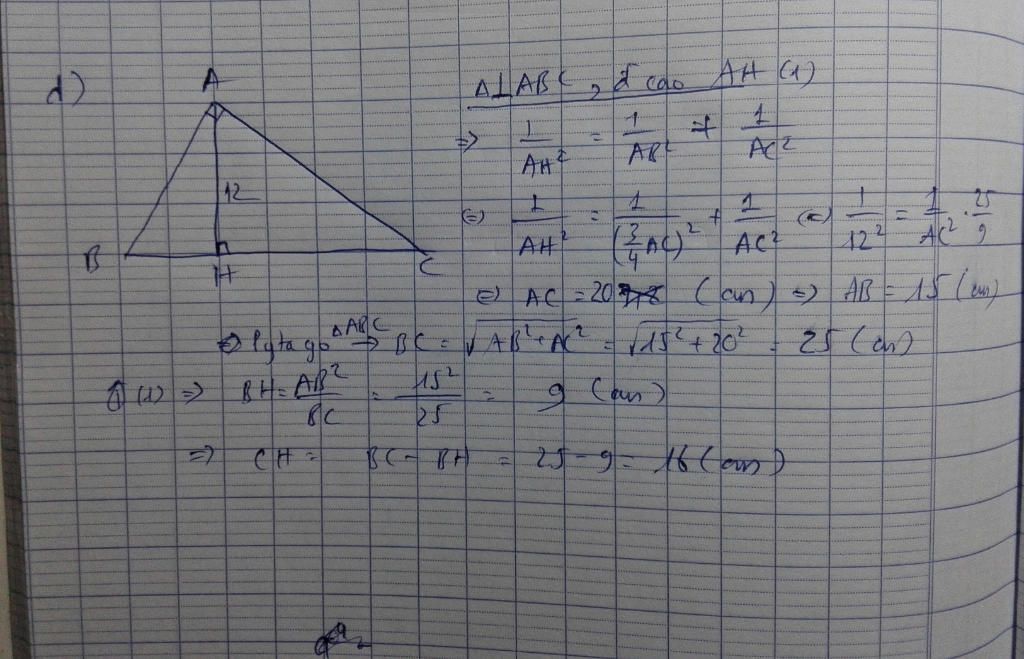 d)
A
12
B
H
C
Δ⊥ABC, đ cao AH (1)
=> 1/AH² = 1/AB² + 1/AC²
<=> 1/AH² = 1/(3/4 AC)² + 1/AC² <=> 1/12² = 1/AC² . 25/9
<=> AC = 20 (cm) => AB = 15 (cm)
=> Pytago ΔABC → BC = √AB² + AC² = √15² + 20² = 25 (cm)
(1) => BH = AB²/BC = 15²/25 = 9 (cm)
=> CH = BC - BH = 25 - 9 = 16 (cm)